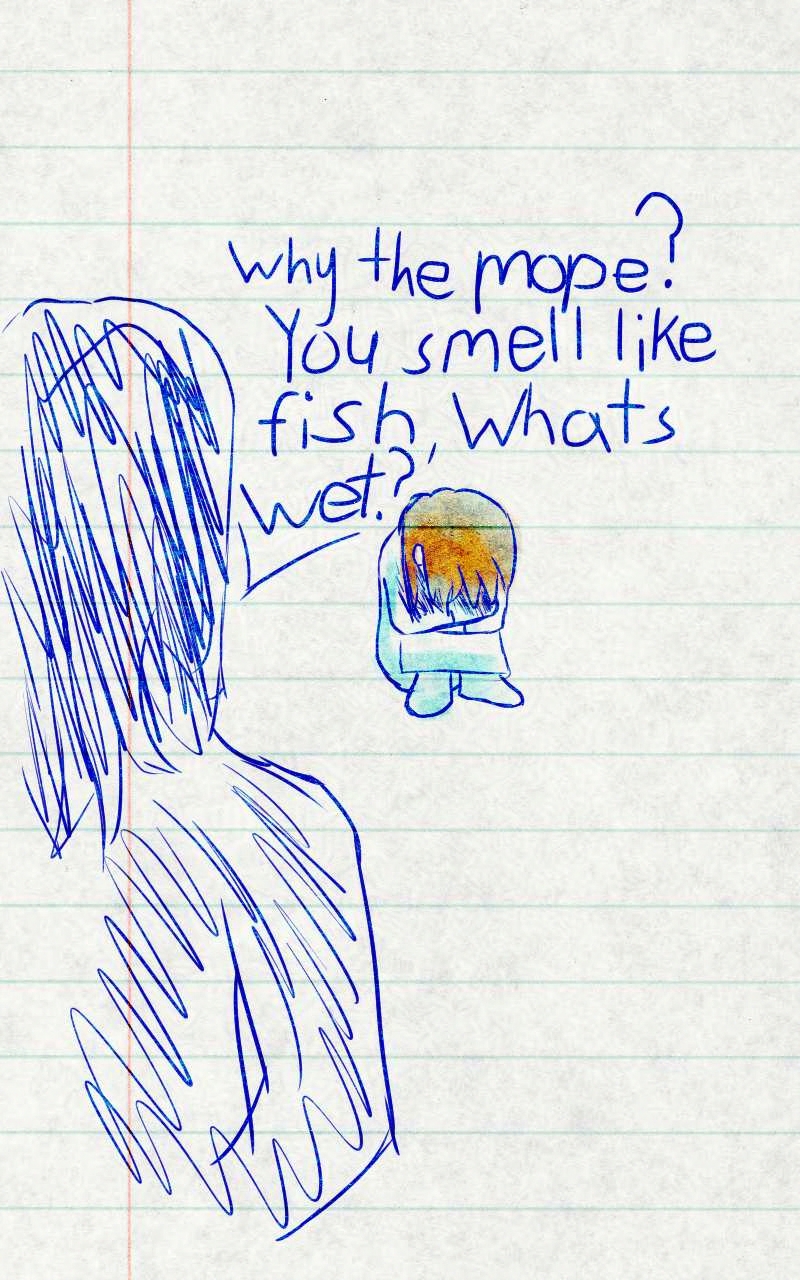 Why the mope?
You smell like
fish, Whats
wet?